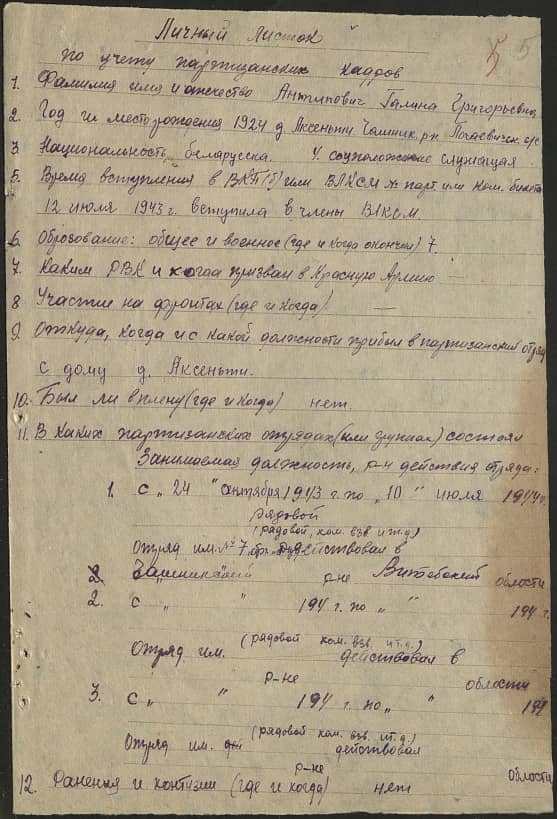 Личный листок
5 5
по учету партизанских кадров
1. Фамилия имя и отчество Антипович Галина Григорьевна
2. Год и место рождения 1924 д Аксеньти Чашник. р-н Почаевичск. с/с
3. Национальность беларусска. 4. соцположение служащая
5. Время вступления в ВКП(б) или ВЛКСМ № парт. или ком. билета
12 июля 1943 г. вступила в члены ВЛКСМ.
6. Оброзование: общее и военное (где и когда окончил) 7.
7. Каким РВК и когда призван в Красную Армию —
8 Участие на фронтах (где и когда) —
9. Откуда, когда и с какой должности прибыл в партизанский отряд
с дому д. Аксеньти.
10. Был ли в плену (где и когда) нет.
11. В каких партизанских отрядах (или группах) состоял
Занимаемая должность, р-н действия отряда:
1. с „ 24 " сентября 1943 г. по „ 10 " июля 1944 г.
рядовой
(рядовой, ком. взв и т.д.)
Отряд им. № 7 действовал в
2. Чашникский р-не Витебский области
2. с „ " 194 г. по „ " 194 г.
(рядовой ком. взв. и т.д.)
Отряд им. действовал в
р-не области
3. с „ " 194 г. по „ " 194
(рядовой ком. взв. и т.д.)
Отряд им. действовал
р-не области
12. Ранения и контузии (где и когда) нет